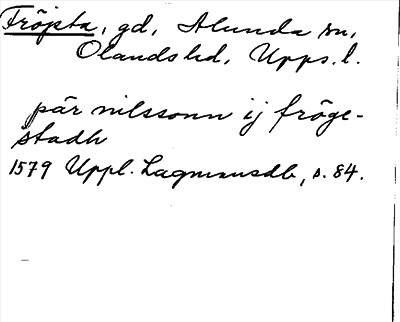 Fröjsta, gd, Alunda sn,
Olands hd, Upps. l.
pär nilssonn ij fröge-
stadh
1579 Uppl. Lagmansdb, s. 84.